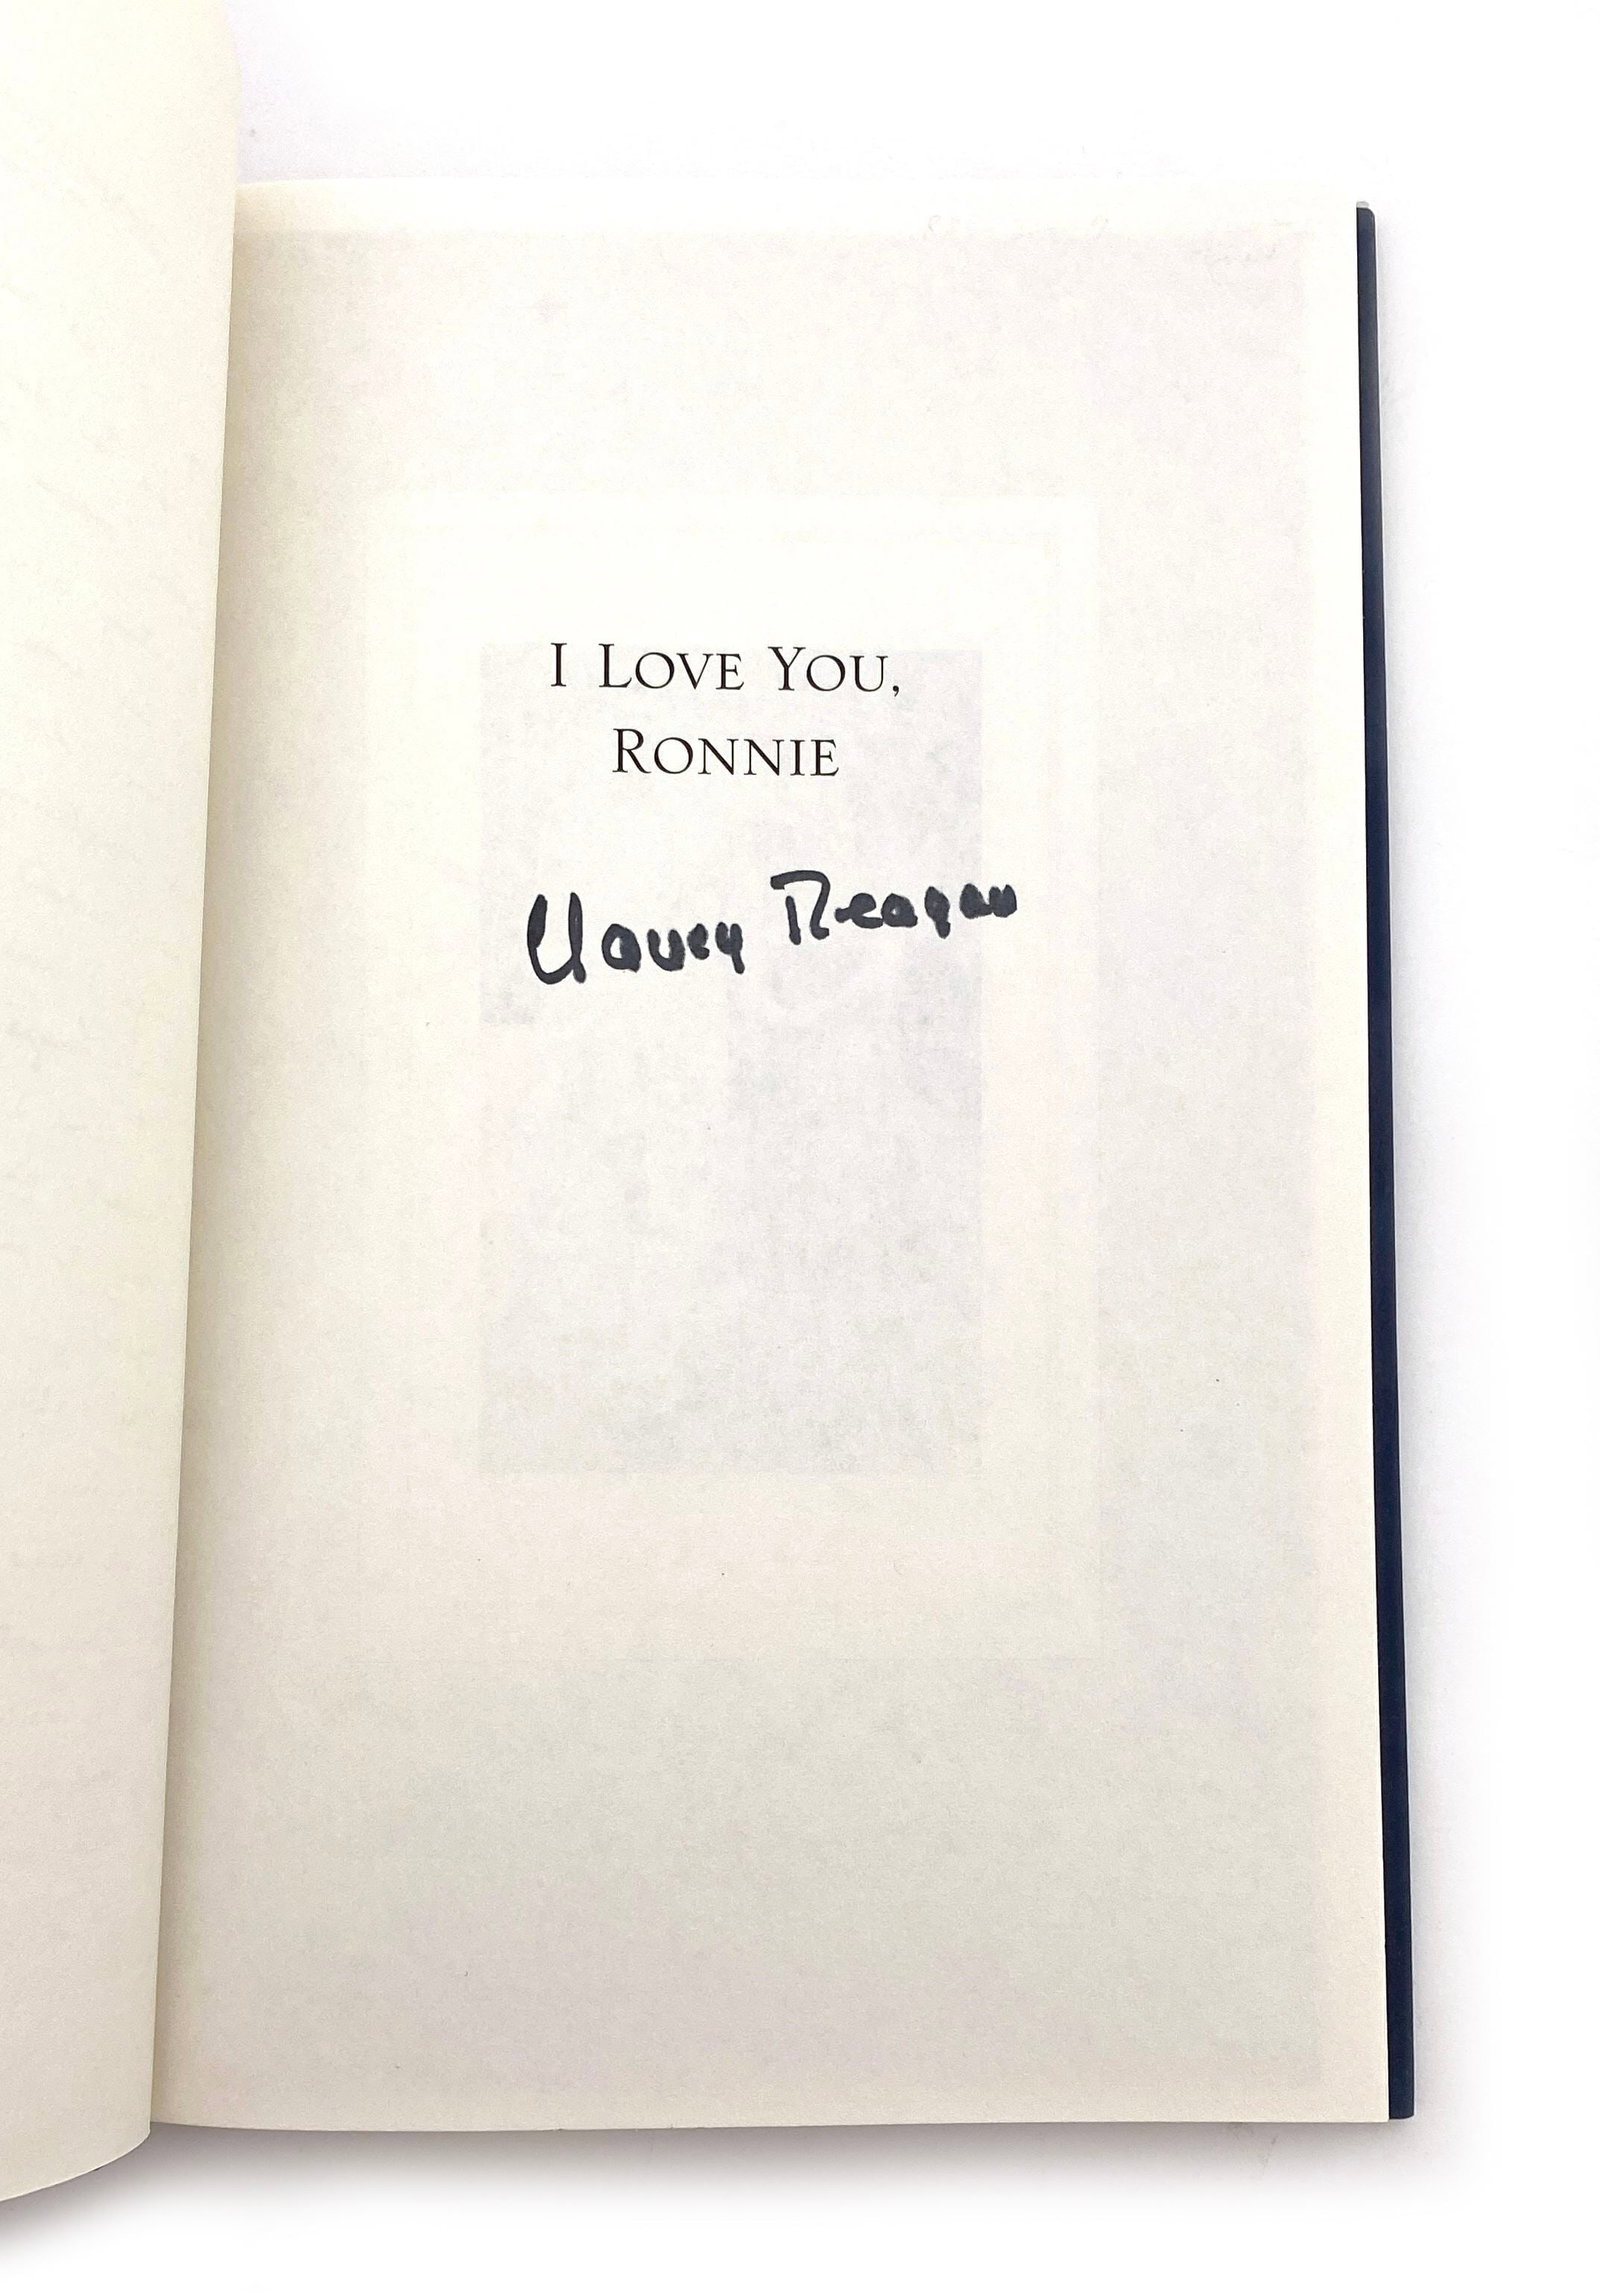 I LOVE YOU,
RONNIE
Nancy Reagan